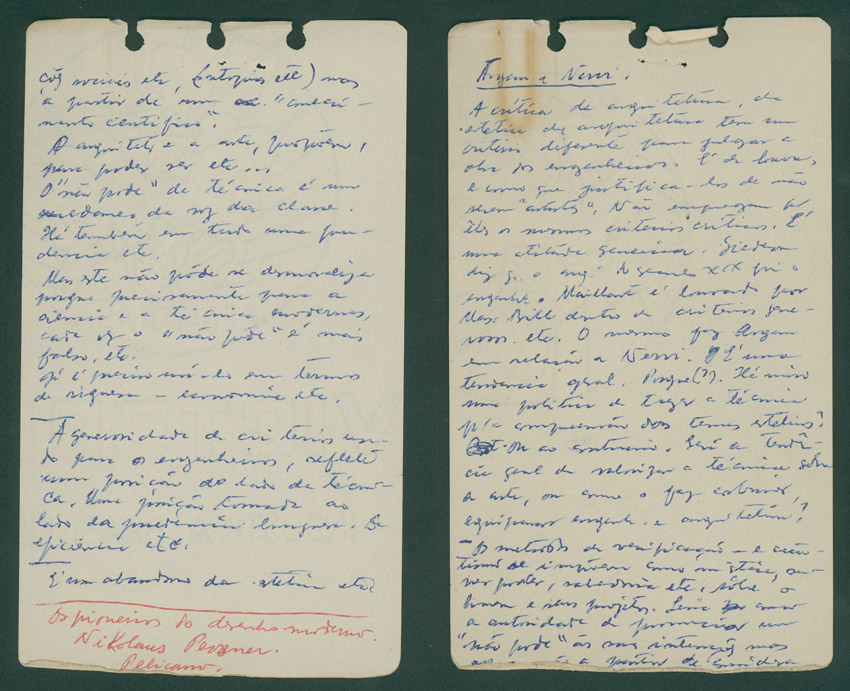 ções sociais etc, (utopias etc) mas
a partir de um "conheci-
mento científico".
O arquiteto, e a arte, propõem,
para poder ser etc...
O "não pode" da técnica é um
da voz da classe.
Há também em tudo uma pru-
dencia etc.
Mas este não pode se desmoraliza
porque precisamente para a
ciência e a técnica modernas,
cada vez o "não pode" é mais
falso, etc.
Já é preciso usá-lo em termos
de riqueza - economia etc.
A generosidade de criterios usa-
do para os engenheiros, reflete
uma posição do lado da técni-
ca. Uma posição tomada ao
lado da prudência burguesa. Da
eficiência etc.
É um abandono da estetica etc
Os pioneiros do desenho moderno.
Nikolaus Pevsner.
Pelicano.
Argan e Nervi.
A crítica de arquitetura, da
estetica da arquitetura tem um
criterio diferente para julgar a
obra dos engenheiros. É de louvor,
e como que justifica-los de não
serem "artistas". Não empregam p/
êles os mesmos criterios críticos. É
uma atitude generosa. Giedeon
diz q. o arq. do seculo XIX foi o
engenho. Maillart é louvado por
Max Bill dentro de criterios gene-
rosos. etc. O mesmo faz Argan
em relação a Nervi. É uma
tendencia geral. Porque(?). Há nisso
uma politica de trazer a técnica
p/a compreensão dos temas esteticos?
ou ao contrario. Será a tendên-
cia geral de valorizar a técnica sobre
a arte, ou como o faz
equiparar engenh. e arquitetura?
- Os metodos de verificação - e cien-
tismo se impõem como mística, ou
ver poder, sabedoria etc, sôbre o
homem e seus projetos. Seria como
a autoridade de pronunciar um
"não pode" às suas intenções mas
a partir de